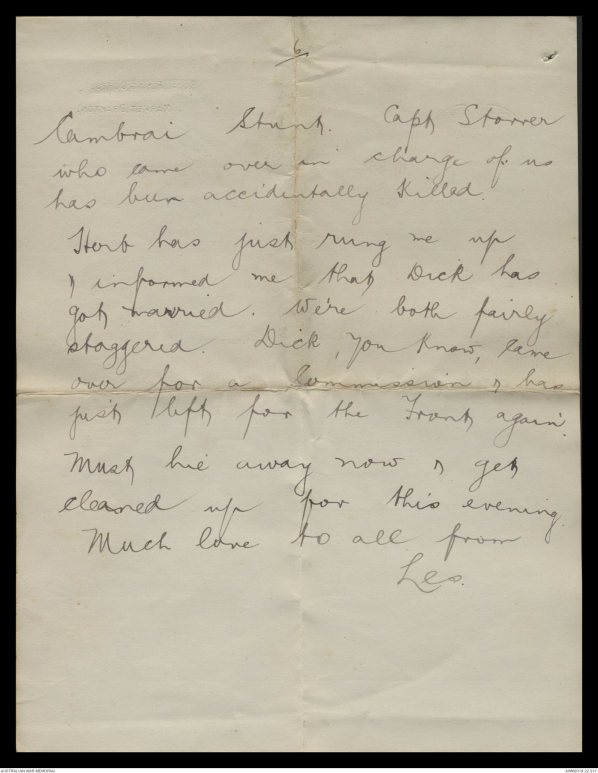 6
Cambrai Stunt. Capt Storrer
who came over in charge of us
has been accidentally Killed.
Herb has just rung me up
& informed me that Dick has
got married. We're both fairly
staggered. Dick, you know, came
over for a Commission & has
just left for the Front again.
Must hie away now & get
cleaned up for this evening
Much love to all from
Les.
AUSTRALIAN WAR MEMORIAL